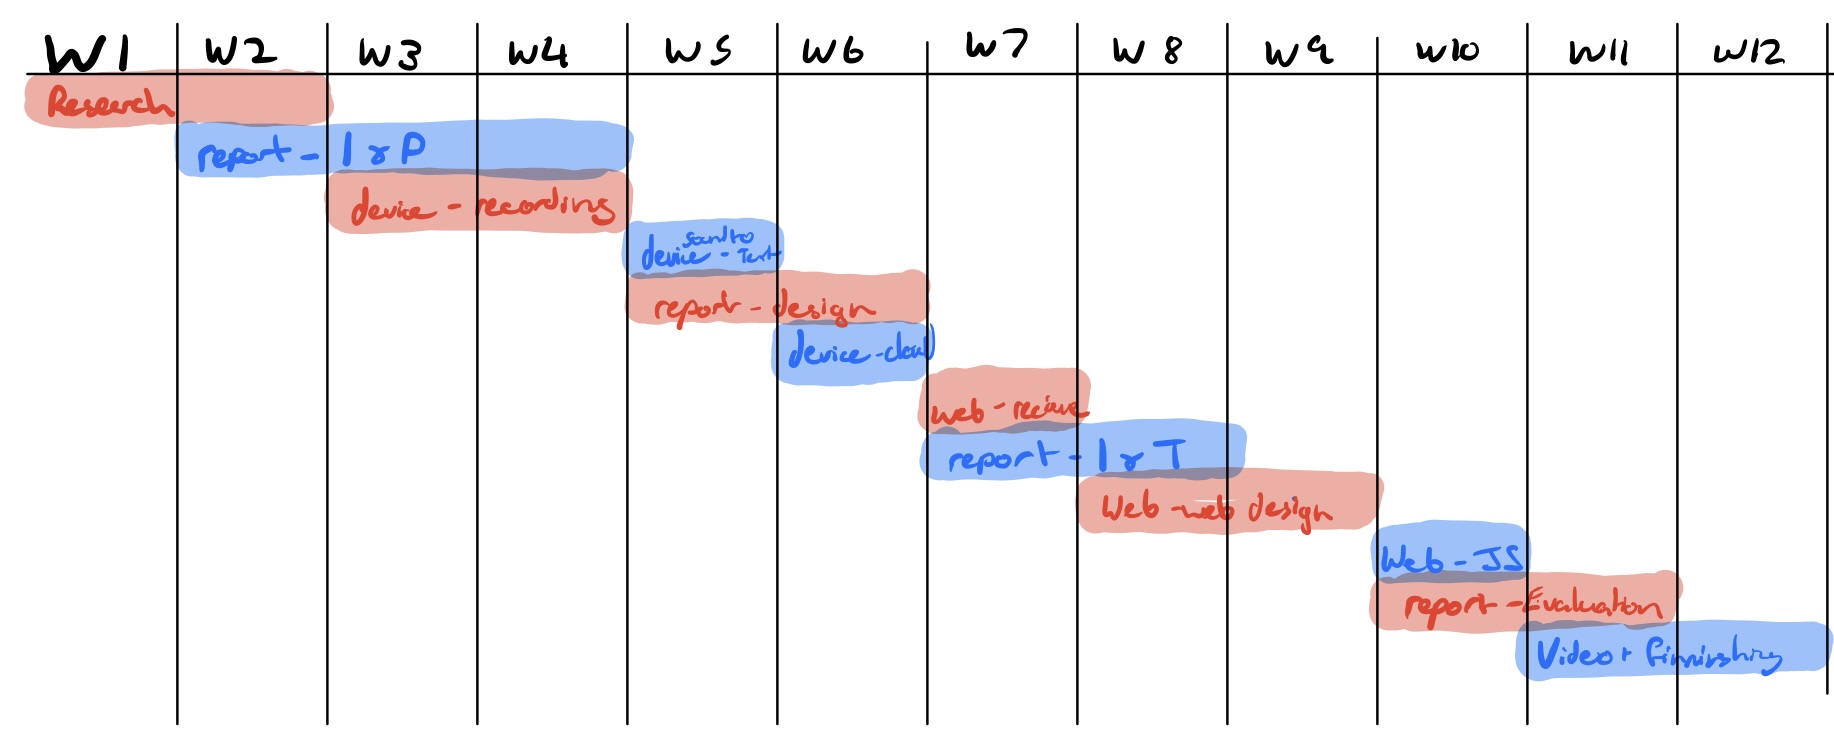 W1 W2 W3 W4 W5 W6 W7 W8 W9 W10 W11 W12
Research
report - I & P
device - recording
sound to
device - Text
report - design
device - cloud
web - recieve
report - I & T
Web - web design
Web - JS
report - Evaluation
Video +